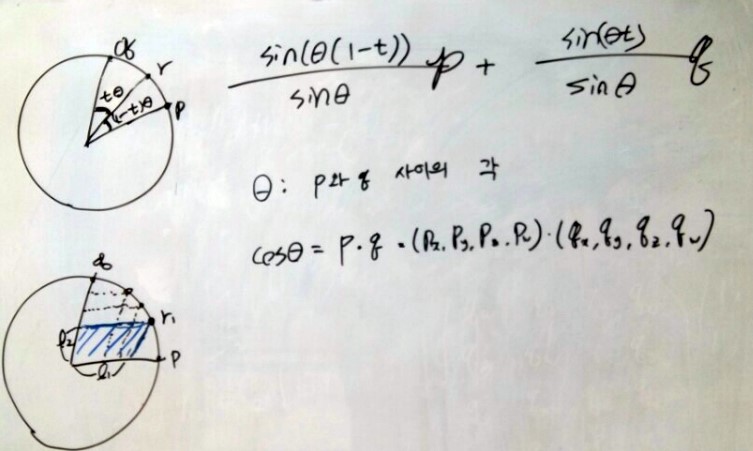 q
r
p
tθ
(1-t)θ
sin(θ(1-t))
sinθ
p +
sin(θt)
sinθ
q
θ: p와 q 사이의 각
cosθ = p·q = (Px, Py, Pz, Pw)·(qx, qy, qz, qw)
q
r₁
p
l₂
l₁